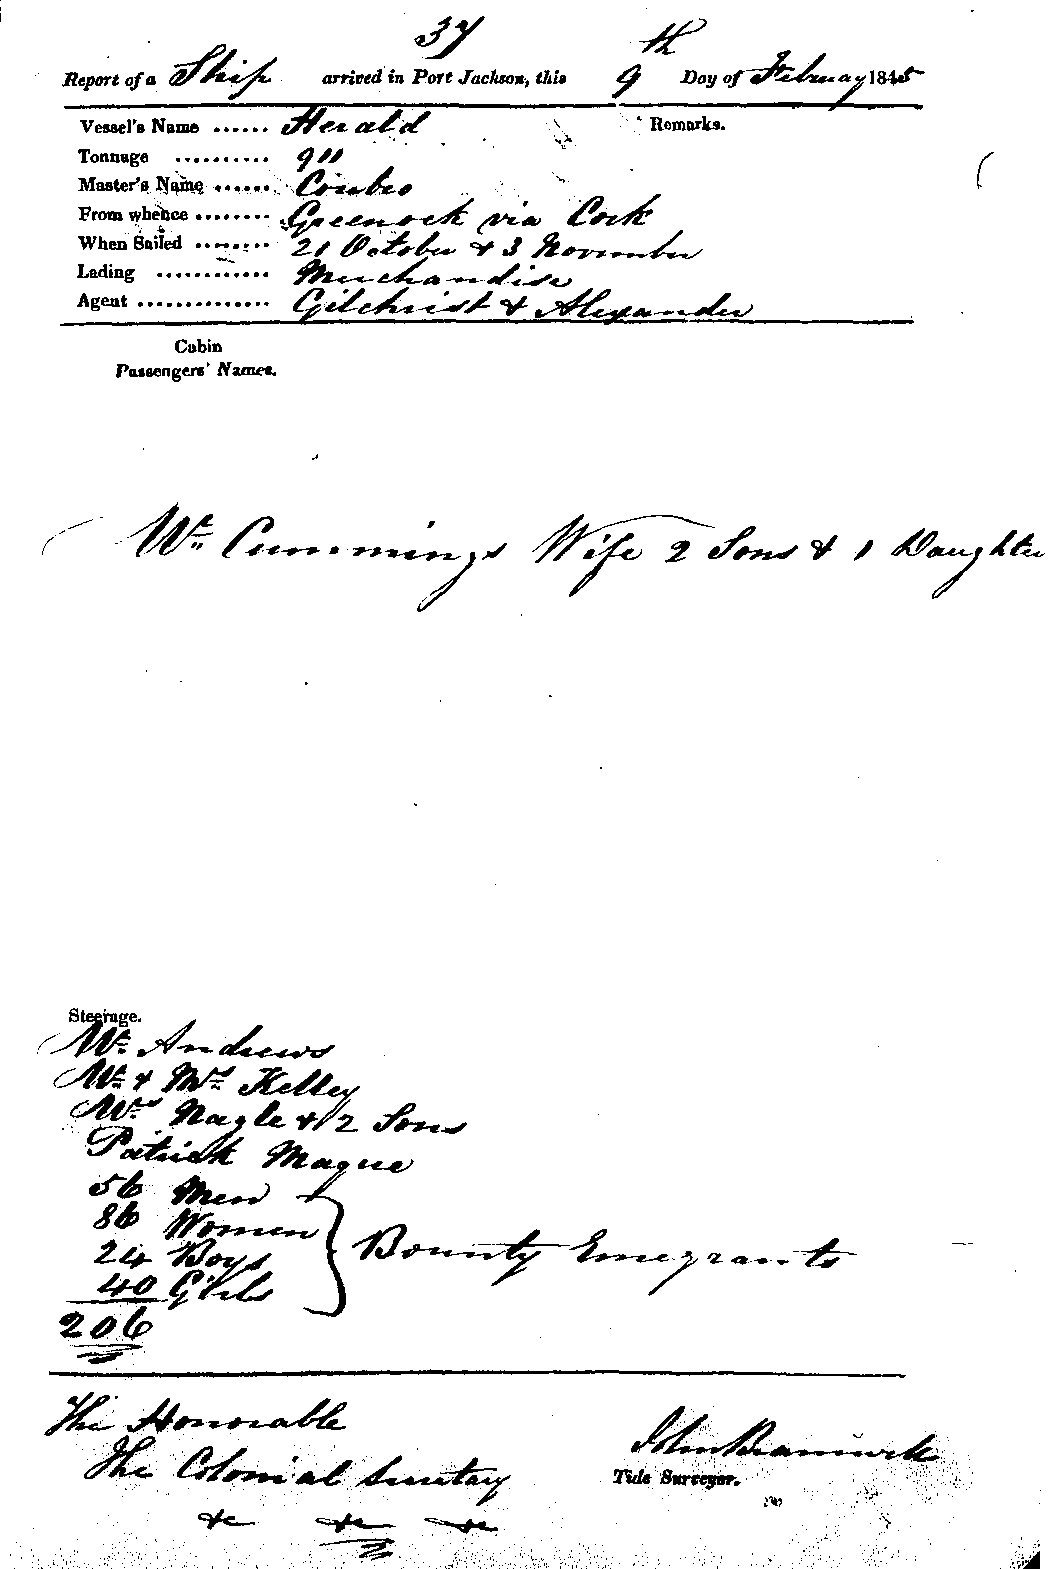 37
Report of a Ship arrived in Port Jackson, this 9th Day of February 1845
Vessel's Name ...... Herald
Remarks.
Tonnage .......... 911
Master's Name ...... Coubro
From whence ........ Greenock via Cork
When Sailed ........ 21 October & 3 November
Lading ............ Merchandise
Agent .............. Gilchrist & Alexander
Cabin
Passengers' Names.
Mr. Cummings Wife 2 Sons & 1 Daughter
Steerage.
Mr. Andrews
Mr. & Mrs. Kelley
Mrs. Nagle & 2 Sons
Patrick Mague
56 Men
86 Women
24 Boys
40 Girls
Bounty Emegrants
206
The Honorable
The Colonial Secretary
&c &c &c
John Bramwell
Tide Surveyor.